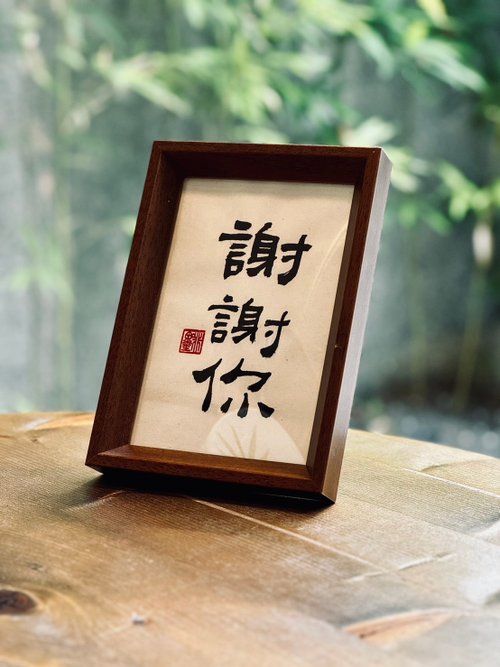 謝
謝
你